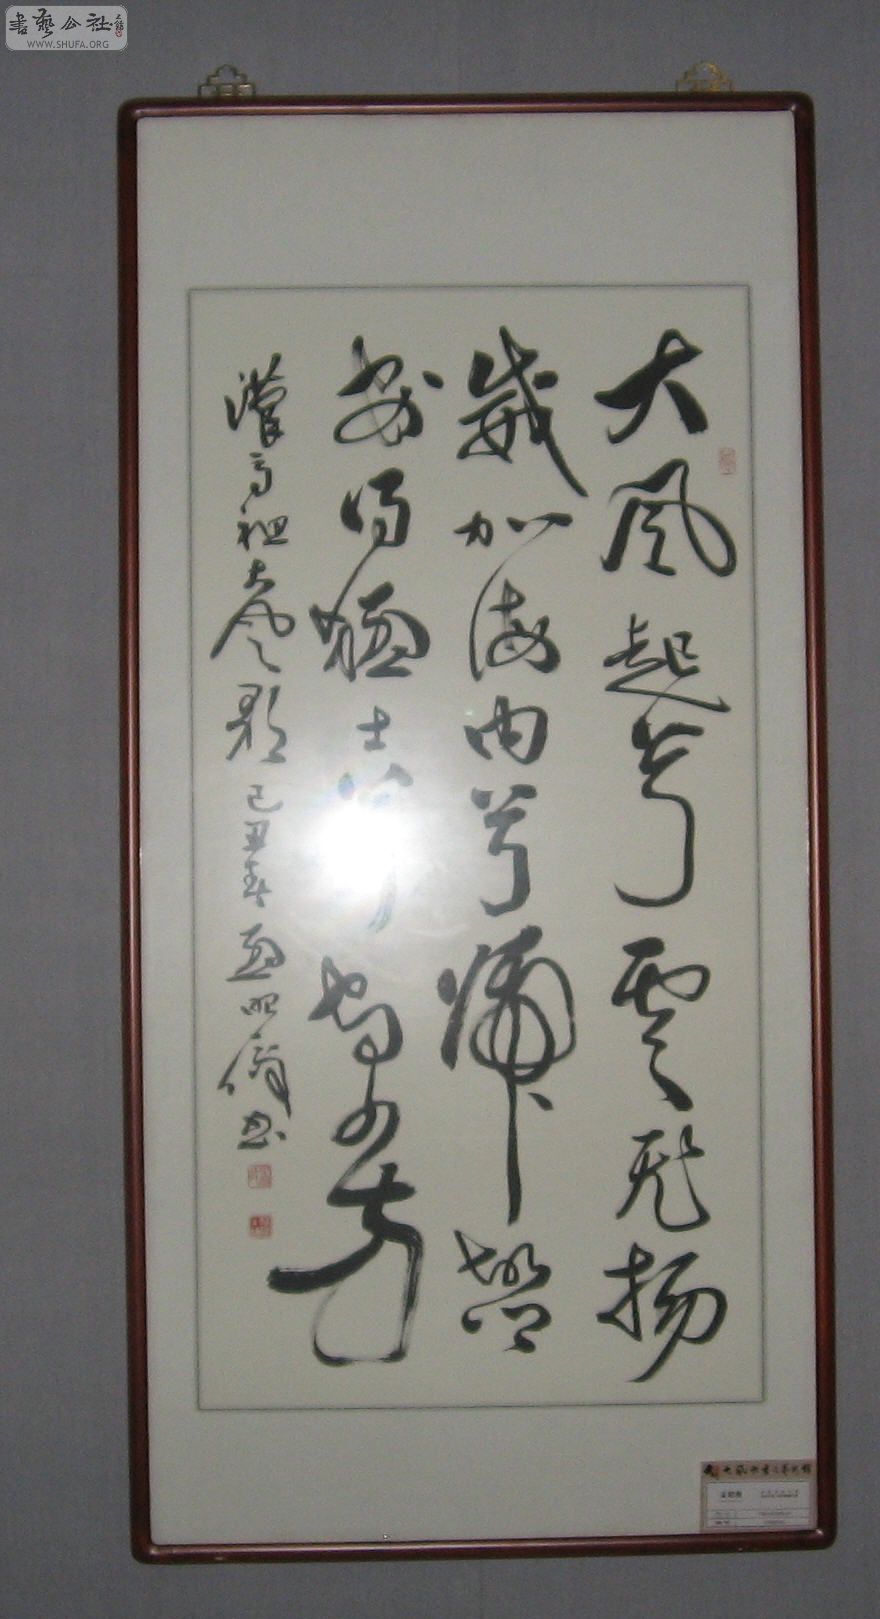 書藝公社
WWW.SHUFA.ORG
大風起兮雲飛揚
威加海内兮歸鄉
安得猛士兮守四方
漢高祖大風歌 己丑春 孟昭 书